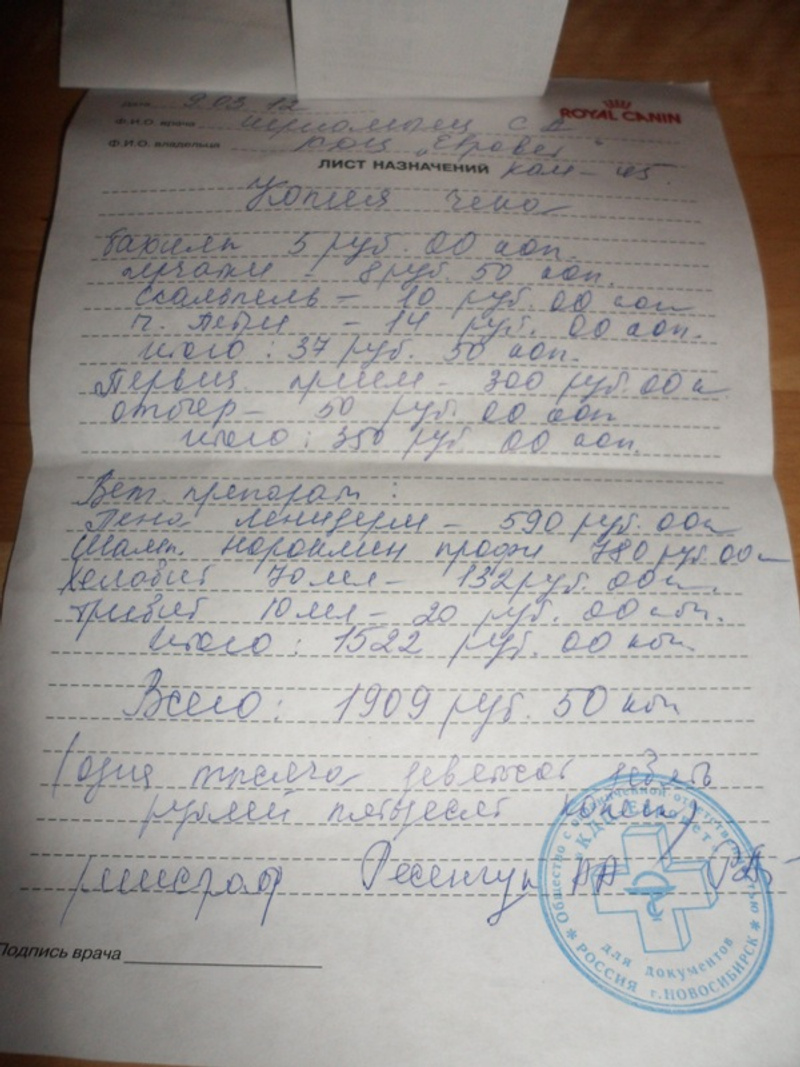 Дата 9.03.12
ROYAL CANIN
Ф.И.О. врача С А
Ф.И.О. владельца КДЦ "Евровет"
ЛИСТ НАЗНАЧЕНИЙ
Копия чека
Бахилы 5 руб. 00 коп.
перчатки - 8 руб 50 коп.
скальпель - 10 руб. 00 коп
- 14 руб. 00 коп.
итого: 37 руб. 50 коп.
Первич. прием - 300 руб. 00 к
отоскр - 50 руб. 00 коп
итого: 350 руб 00 коп.
Вет. препарат:
Пена - 590 руб. 00 к
Шамп. профи 780 руб. 00 к
70 мл - 132 руб. 00 к.
10 мл - 20 руб. 00 коп.
Итого: 1522 руб. 00 коп
Всего: 1909 руб. 50 коп
(одна тысяча девятьсот девять
рублей пятьдесят копеек)
Подпись врача
Общество с ограниченной ответственностью
КДЦ "Евровет"
для документов
* РОССИЯ г. НОВОСИБИРСК *